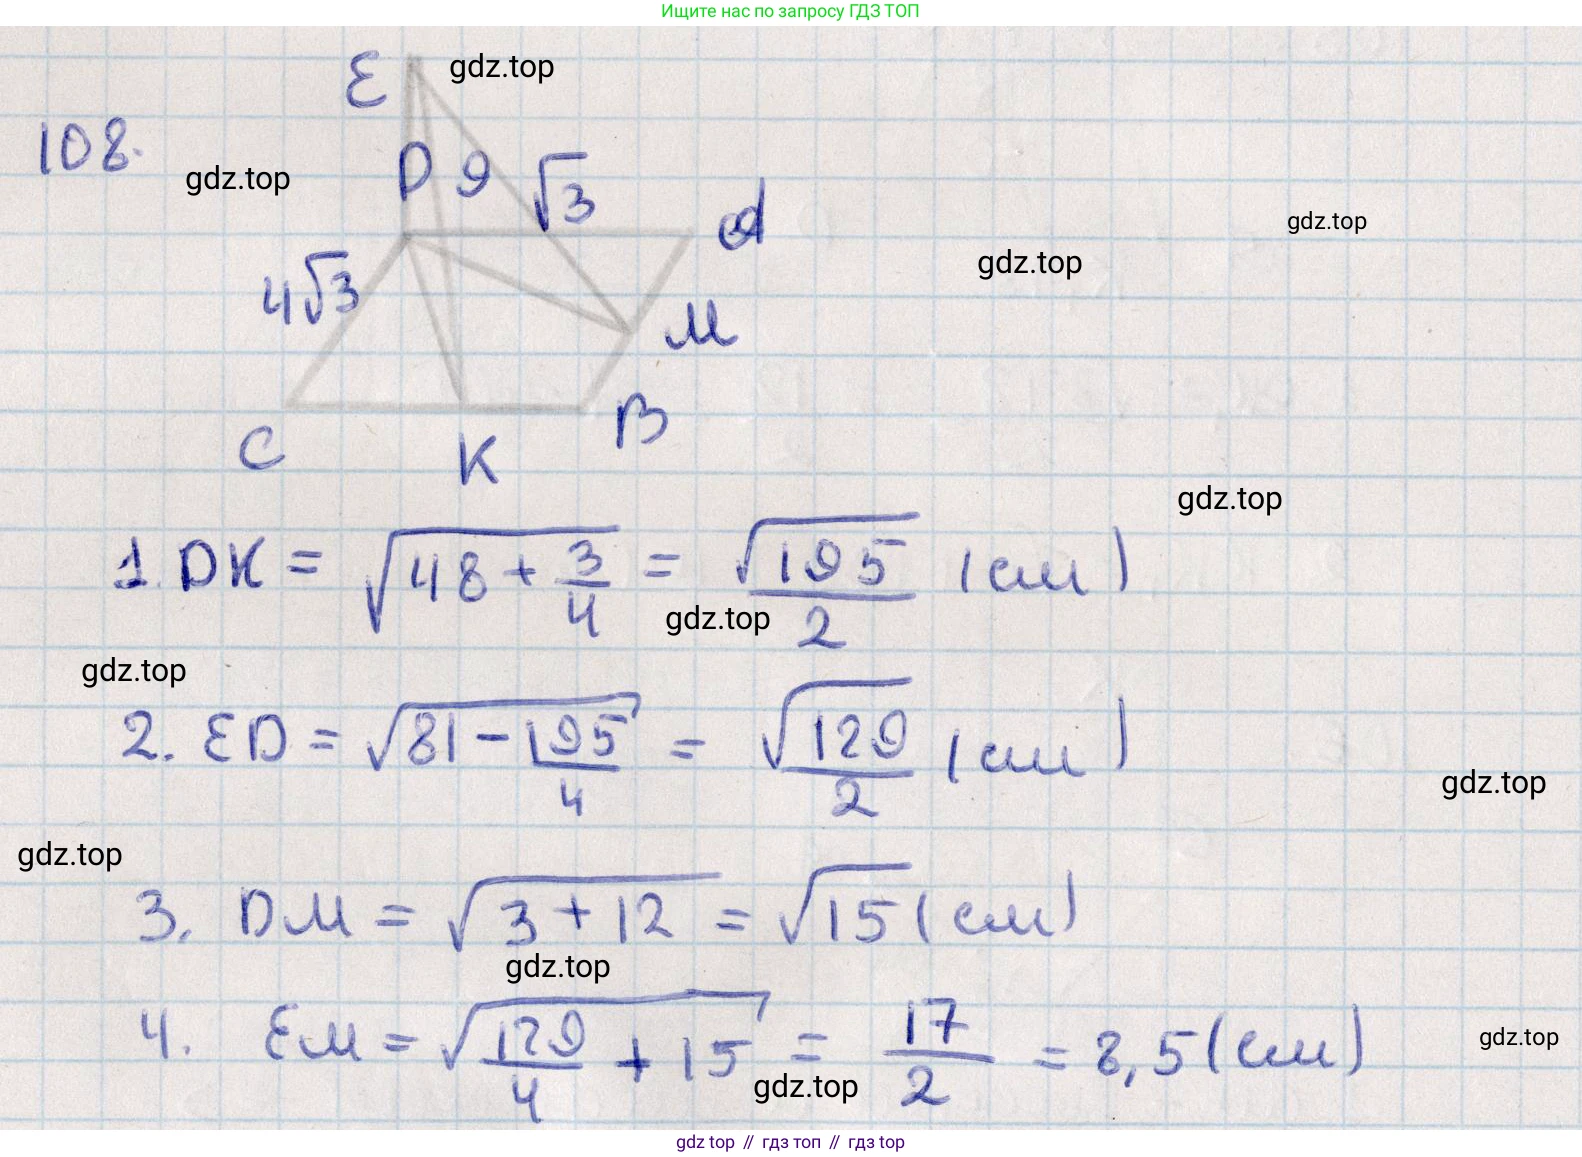 Ищите нас по запросу ГДЗ ТОП
E gdz.top
108.
gdz.top
D 9 √3
A
gdz.top
gdz.top
4√3
M
C K B
gdz.top
1. DK = √(48 + 3/4) = √195/2 (см)
gdz.top
gdz.top
2. ED = √(81 - 195/4) = √129/2 (см)
gdz.top
gdz.top
3. DM = √(3 + 12) = √15 (см)
gdz.top
4. EM = √(129/4 + 15) = 17/2 = 8,5 (см)
gdz.top
gdz.top
gdz top // гдз топ // гдз top